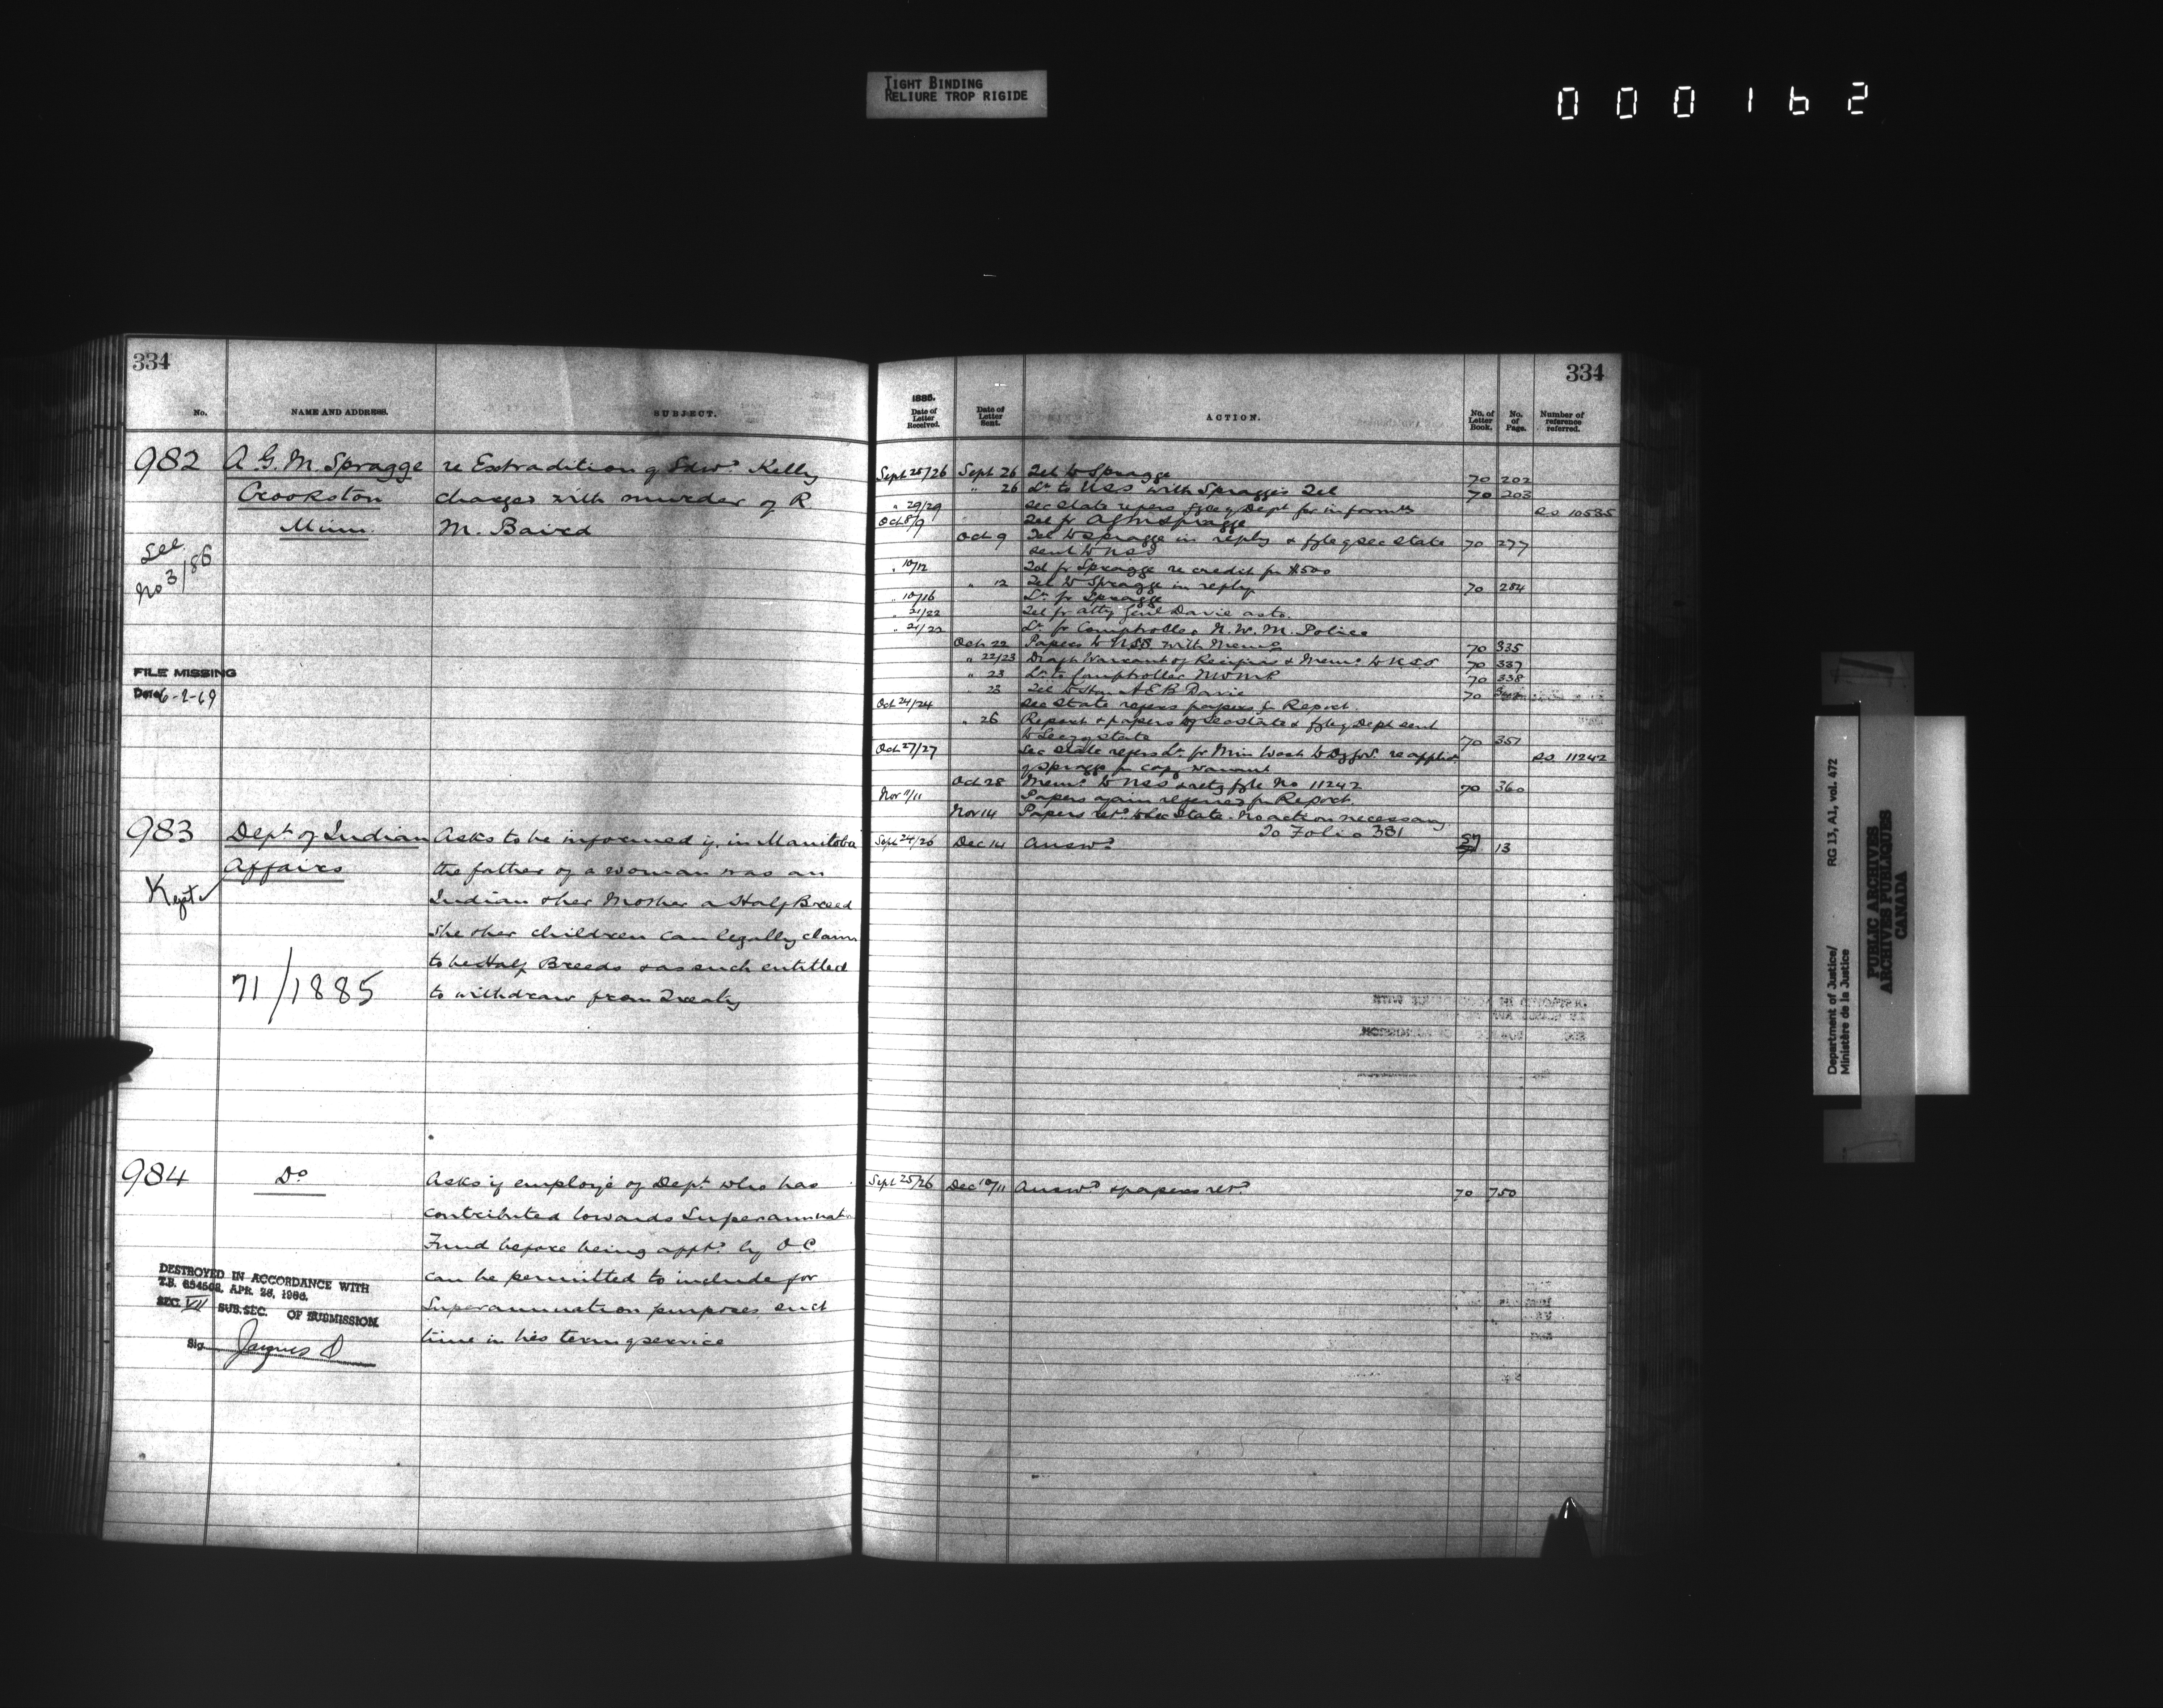 TIGHT BINDING
RELIURE TROP RIGIDE
000162
334
No. NAME AND ADDRESS. SUBJECT.
982 A. G. M. Spragge re Extradition of Edwd. Kelly
Crookston charged with murder of R
Minn. M. Baird
See
No 3/86
FILE MISSING
Date 6-2-69
983 Dept. of Indian Asks to be informed if, in Manitoba
Affairs the father of a woman was an
Kept Indian & her Mother a Half Breed
She & her children can legally claim
to be Half Breeds & as such entitled
71/1885 to withdraw from Treaty
984 Do Asks if employé of Dept. who has
contributed towards Superannuatn
Fund before being apptd. by O C
can be permitted to include for
Superannuation purposes such
time in his term of service
DESTROYED IN ACCORDANCE WITH
T.B. 654502, APR. 26, 1966.
SEC. VII SUB.SEC. OF SUBMISSION.
Sig. Jaques
334
1885.
Date of Letter Received. Date of Letter Sent. ACTION. No. of Letter Book. No. of Page. Number of reference referred.
Sept 25/26 Sept 26 Tel to Spragge 70 202
" 26 Lr. to USS with Spragge's Tel 70 203
" 29/29 Sec State refers fyle of Dept for informtn SS 10535
Oct 8/9 Tel fr A G M Spragge
Oct 9 Tel to Spragge in reply & fyle of Sec State 70 277
sent to USS
" 10/12 Tel fr Spragge re credit for $500
" 12 Tel to Spragge in reply 70 284
" 10/16 Lr. fr Spragge
" 21/22 Tel fr Atty Genl Davie as to.
" 21/22 Lr. fr Comptroller N. W. M. Police
Oct 22 Papers to USS with Memo 70 335
" 22/23 Draft Warrant of Recipias & Memo. to USS 70 337
" 23 Lr. to Comptroller NWMP 70 338
" 23 Tel to Hon A E B Davie 70
Oct 24/24 Sec State refers papers for Report.
" 26 Report & papers of Sec State & fyle of Dept sent
to Secy of State 70 351
Oct 27/27 Sec State refers Lr. fr Min Wash to re applicn SS 11242
of Spragge for warrant
Oct 28 Memo. to USS fyle No 11242 70 360
Nov 11/11 Papers again referred for Report.
Nov 14 Papers retd. to Sec State. No action necessary
To Folio 381
Sept 24/26 Dec 14 Answd. 57 13
Sept 25/26 Dec 10/11 Answd. & papers retd. 70 750
Department of Justice/ RG 13, A1, vol. 472
Ministère de la Justice
PUBLIC ARCHIVES
ARCHIVES PUBLIQUES
CANADA